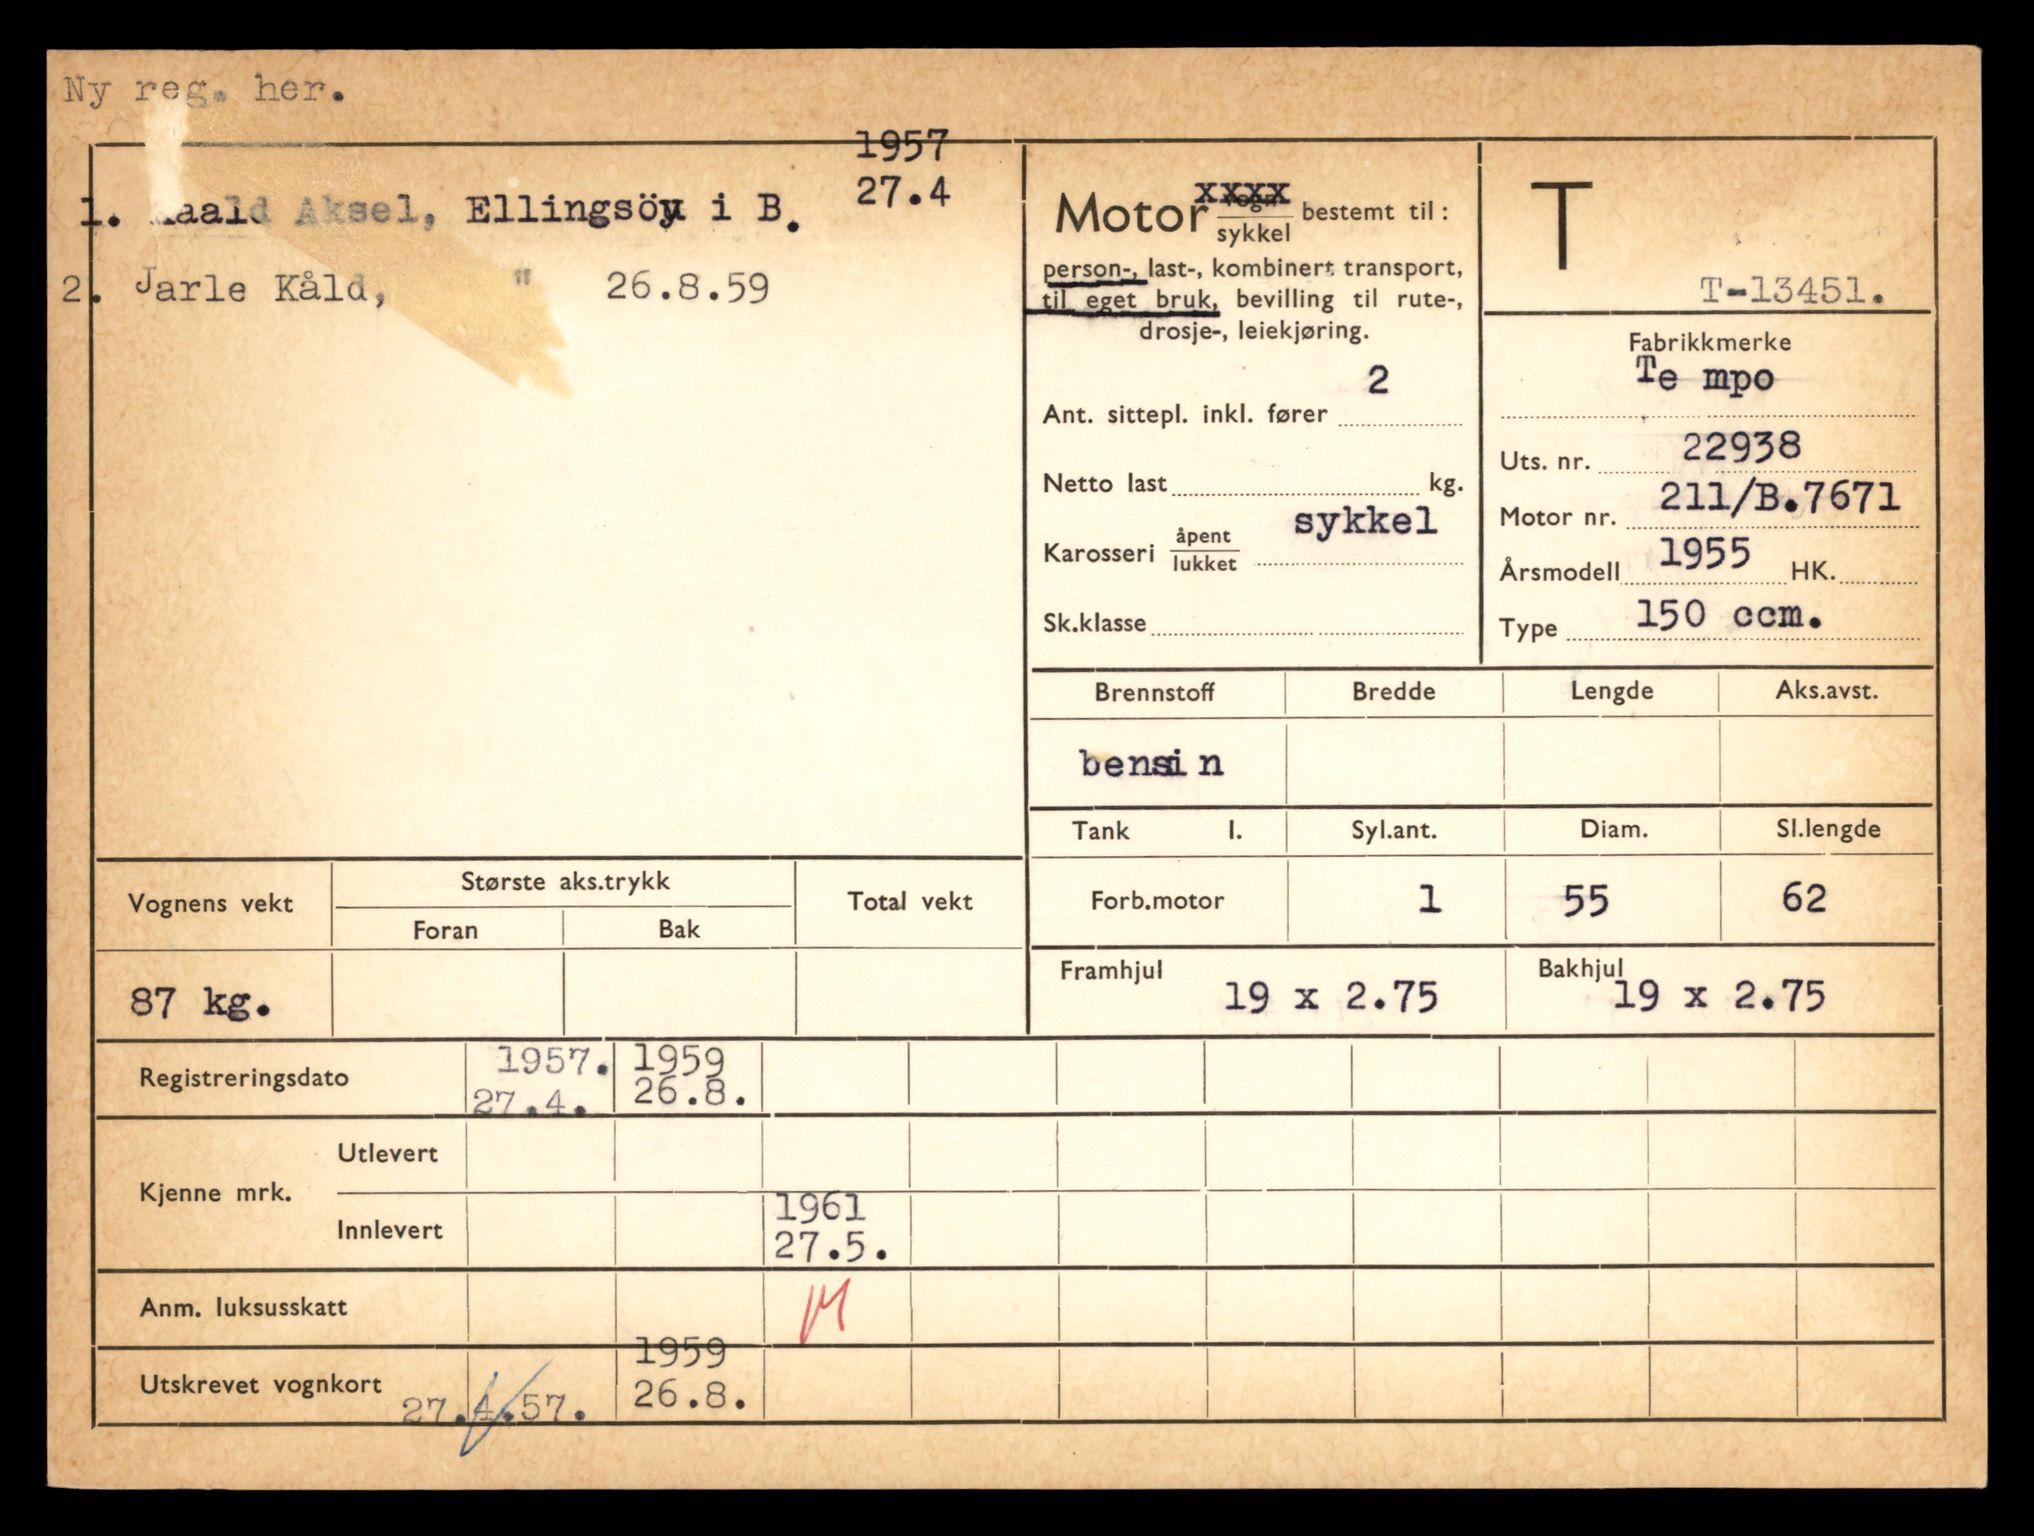 Ny reg. her.
1957
27.4
1. Kaald Aksel, Ellingsöy i B.
2. Jarle Kåld, " 26.8.59
Motor xxxx
vogn
sykkel
bestemt til:
person-, last-, kombinert transport,
til eget bruk, bevilling til rute-,
drosje-, leiekjøring.
Ant. sittepl. inkl. fører 2
Netto last kg.
Karosseri åpent
lukket
sykkel
Sk.klasse
T
T-13451.
Fabrikkmerke
Te mpo
Uts. nr. 22938
Motor nr. 211/B.7671
Årsmodell 1955 HK.
Type 150 ccm.
Brennstoff Bredde Lengde Aks.avst.
bensin
Tank l. Syl.ant. Diam. Sl.lengde
Forb.motor 1 55 62
Framhjul 19 x 2.75 Bakhjul 19 x 2.75
Vognens vekt Største aks.trykk Total vekt
Foran Bak
87 kg.
Registreringsdato 1957. 1959
27.4. 26.8.
Kjenne mrk. Utlevert
Innlevert 1961
27.5.
Anm. luksusskatt
Utskrevet vognkort 27.4.57. 1959
26.8.